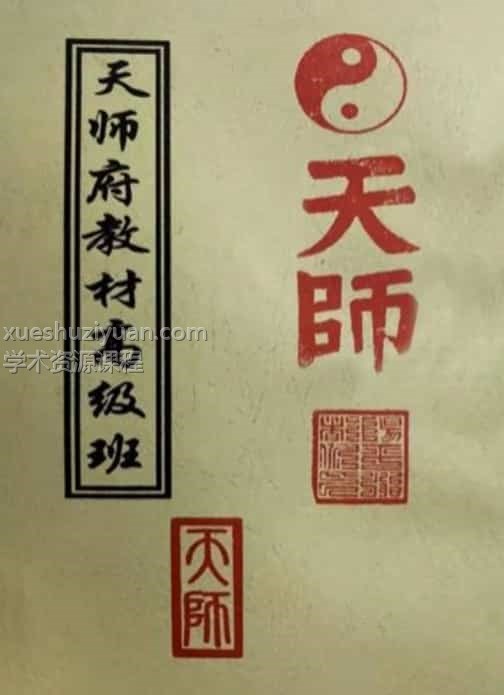 天师府教材高级班
天師
xueshuziyuan.com
学术资源课程
天師